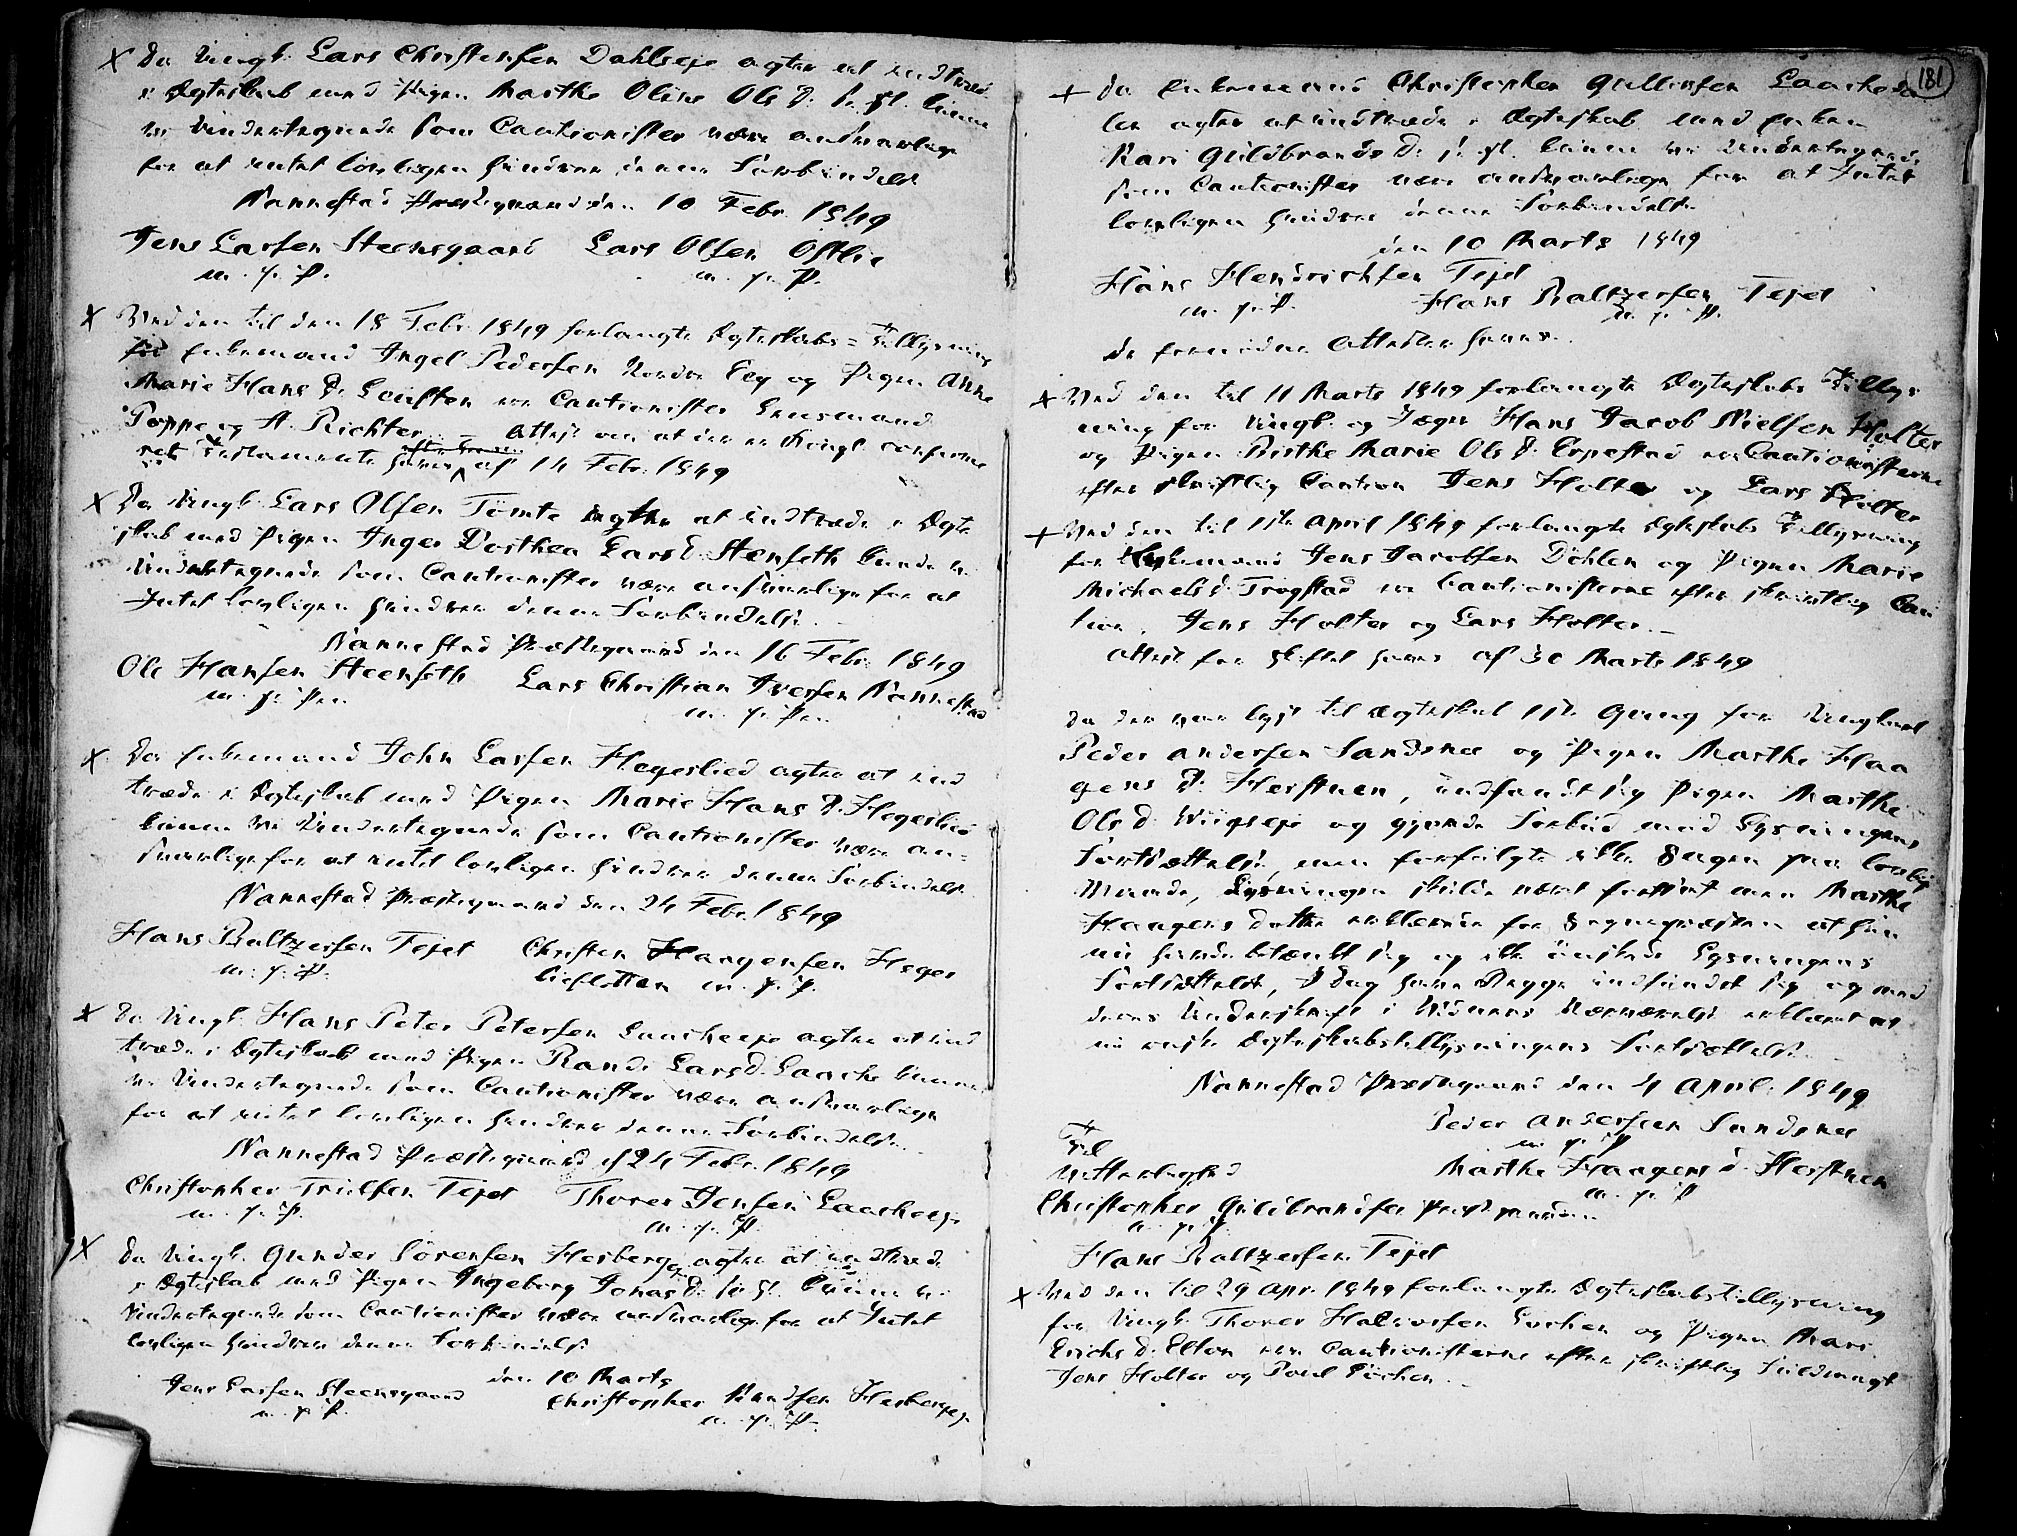 × Da Ungk. Lars Christensen Dahlseje agter at indtræde
i Ægteskab med Pigen Marthe Oline Ols D. kunne
vi Undertegnede som Cautionister være ansvarlige
for at intet lovligen hindrer denne Forbindelse
Nannestad Præstegaard den 10 Febr. 1849
Jens Larsen Steensgaard Lars Olsen Østlie
m. p. P. m. p. P.
× Ved den til den 18 Febr. 1849 forlangte Ægteskabs-Tillysning
for Enkemand Ingel Pedersen Nordre Eeg og Pigen Anne
Marie Hans D. ere Cautionister Lensmand
Poppe og A. Richter. – Attest om at der er Kongl. confirme
ret Testamente haves af 14 Febr. 1849
× Da Ungk. Lars Olsen Tømte agter at indtræde i Ægte
skab med Pigen Inger Dorthea Larsd. Stenseth kunde vi
Undertegnede som Cautionister være ansvarlige for at
Intet lovligen hindrer denne Forbindelse. –
Nannestad Præstegaard den 16 Febr. 1849
Ole Hansen Steenseth Lars Christian Iversen Nannestad
m. p. Pen m. p. Pen
× Da Enkemand John Larsen Hegerlied agter at ind
træde i Ægteskab med Pigen Marie Hans D. Hegerlied
kunne vi Undertegnede som Cautionister være an-
svarlige for at intet lovligen hindrer denne Forbindelse
Nannestad Præstegaard den 24 Febr. 1849
Hans Baltzersen Tejet Christen Haagensen Heger
m. p. P. lieslotten m. p. P.
× Da Ungk. Hans Peter Petersen Laacheeje agter at ind
træde i Ægteskab med Pigen Rande Larsd. Laache kunne
vi Undertegnede som Cautionister være ansvarlige
for at intet lovligen hindrer denne Forbindelse. –
Nannestad Præstegaard d 24 Febr. 1849
Christopher Trulsen Tejet Thorer Jensen Laacheeje
m. p. P. m. p. P.
× Da Ungk. Gunder Sørensen Herberg agter at indtræde
i Ægteskab med Pigen Ingeborg Jonas D. kunne vi
Undertegnede som Cautionister være ansvarlige for at Intet
lovligen hindrer denne Forbindelse
den 10 Marts
Jens Larsen Steensgaard Christopher Knudsen
m. p. P. m. p. P.
181
× Da Enkemand Christopher Gulliksen Laacheda
len agter at indtræde i Ægteskab med Enken
Kari Guldbrands D. kunne vi Undertegnede
som Cautionister være ansvarlige for at Intet
lovligen hindrer denne Forbindelse
den 10 Marts 1849
Hans Hendrichsen Tejet
m. p. P. Hans Baltzersen Tejet
m. p. P.
de fornødne Attester haves.
× Ved den til 11 Marts 1849 forlangte Ægteskabs Tillys
ning for Ungk. og Jæger Hans Jacob Nielsen Holter
og Pigen Birthe Marie Ols D. Erpestad ere Cautionisterne
efter skriftlig Caution Jens Holter og Lars Holter
× Ved den til 1ste April 1849 forlangte Ægteskabs Tillysning
for Enkemand Jens Jacobsen Döhlen og Pigen Marie
Michaels D. Trøgstad ere Cautionisterne efter skriftlig Cau
tion. Jens Holter og Lars Holter. –
Attest for Skiftet haves af 30 Marts 1849
Da der var lyst til Ægteskab 1ste Gang for Ungkarl
Peder Andersen Sandsnes og Pigen Marthe Haa
gens D. Herstuen, indfandt sig Pigen Marthe
Ols D. Wiigseje og gjorde Forbud mod Lysningens
Fortsættelse, men forfulgte ikke Sagen paa lovlig
Maade, Lysningen skulde været fortsat men Marthe
Haagens datter erklærede for Sognepræsten at hun
nu havde betænkt sig og ikke ønskede Lysningens
Fortsættelse, I Dag have Begge indfundet sig og med
deres Underskrift i Vidners Nærværelse erklæret at
nu ønske Ægteskabstillysningens Fortsættelse. –
Nannestad Præstegaard den 4 April 1849
Peder Andersen Sandsnes
m. p. P
Til
Vitterlighed Marthe Haagens D. Herstuen
m. p. P
Christopher Guldbrandsen Præstegaarden
m. p. P.
Hans Baltzersen Tejet
× Ved den til 29 Apr. 1849 forlangte Ægteskabstillysning
for Ungk. Thorer Halvorsen Lochen og Pigen Mari
Erichs D. Elton ere Cautionisterne efter skriftlig Fuldmagt
Jens Holter og Poul Lochen. –